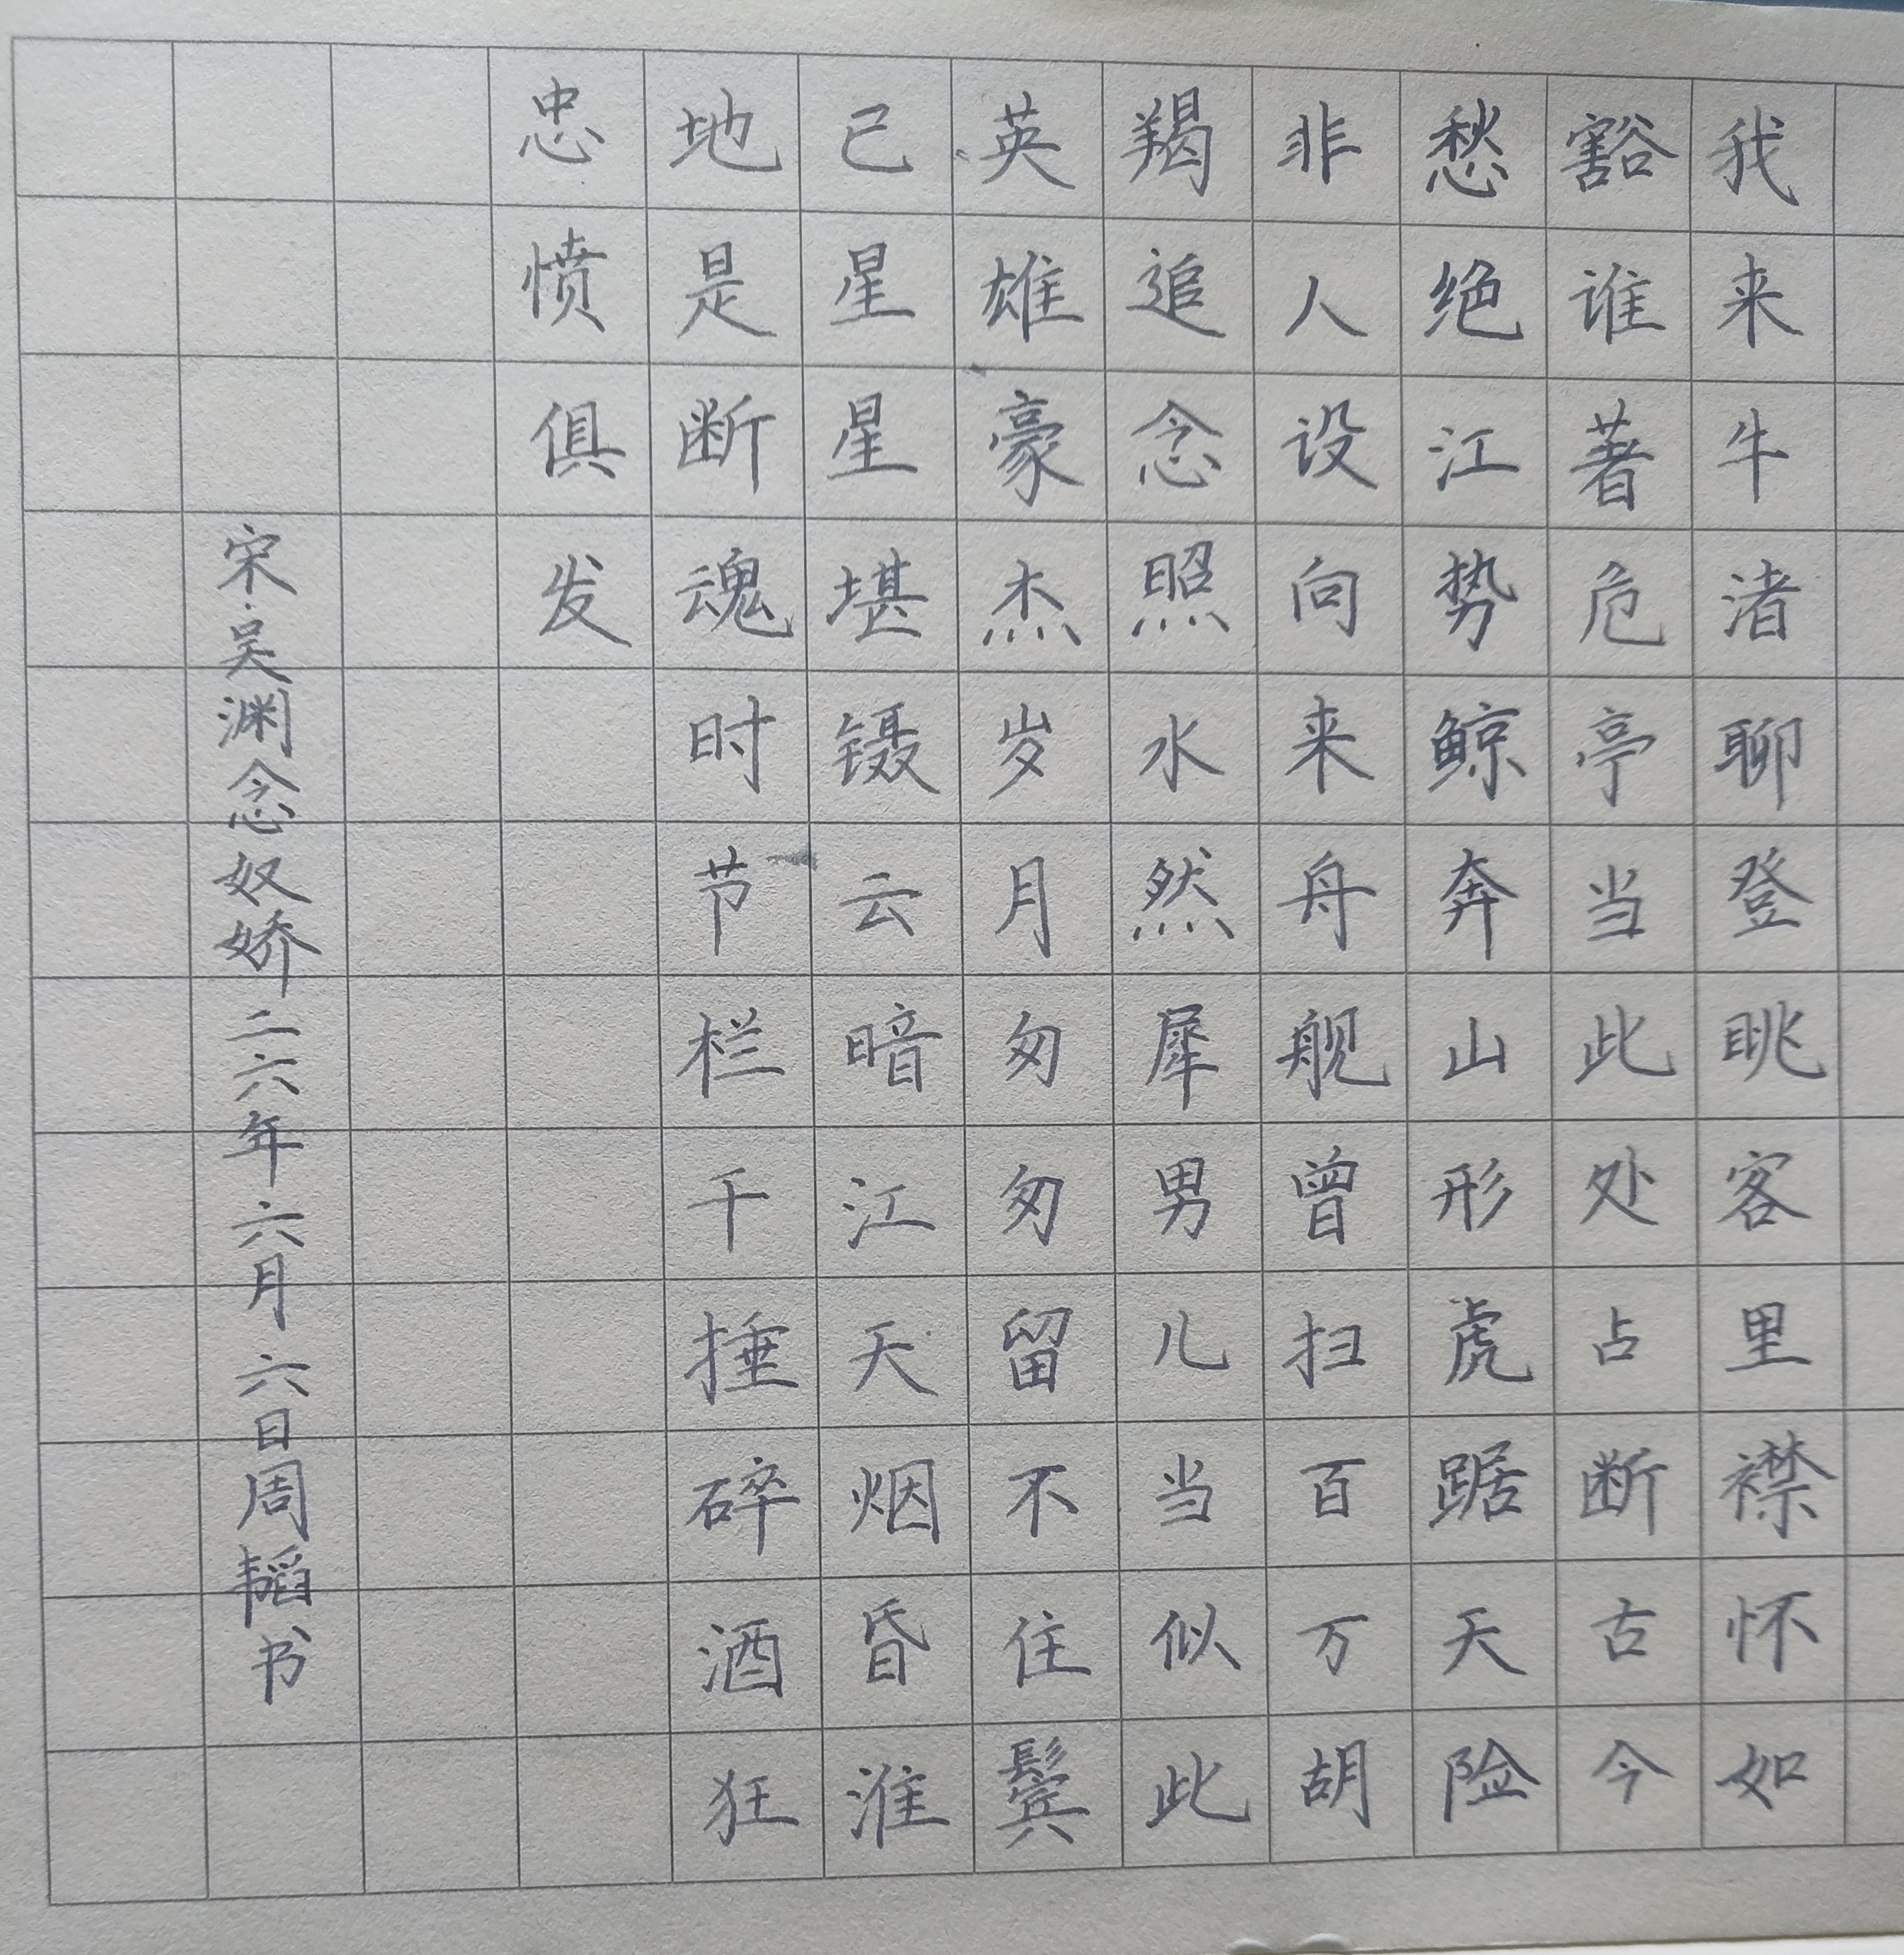 我来牛渚聊登眺客里襟怀如
豁谁著危亭当此处占断古今
愁绝江势鲸奔山形虎踞天险
非人设向来舟舰曾扫百万胡
羯追念照水然犀男儿当似此
英雄豪杰岁月匆匆留不住鬓
已星星堪镊云暗江天烟昏淮
地是断魂时节栏干捶碎酒狂
忠愤俱发
宋·吴渊念奴娇二六年六月六日周韬书